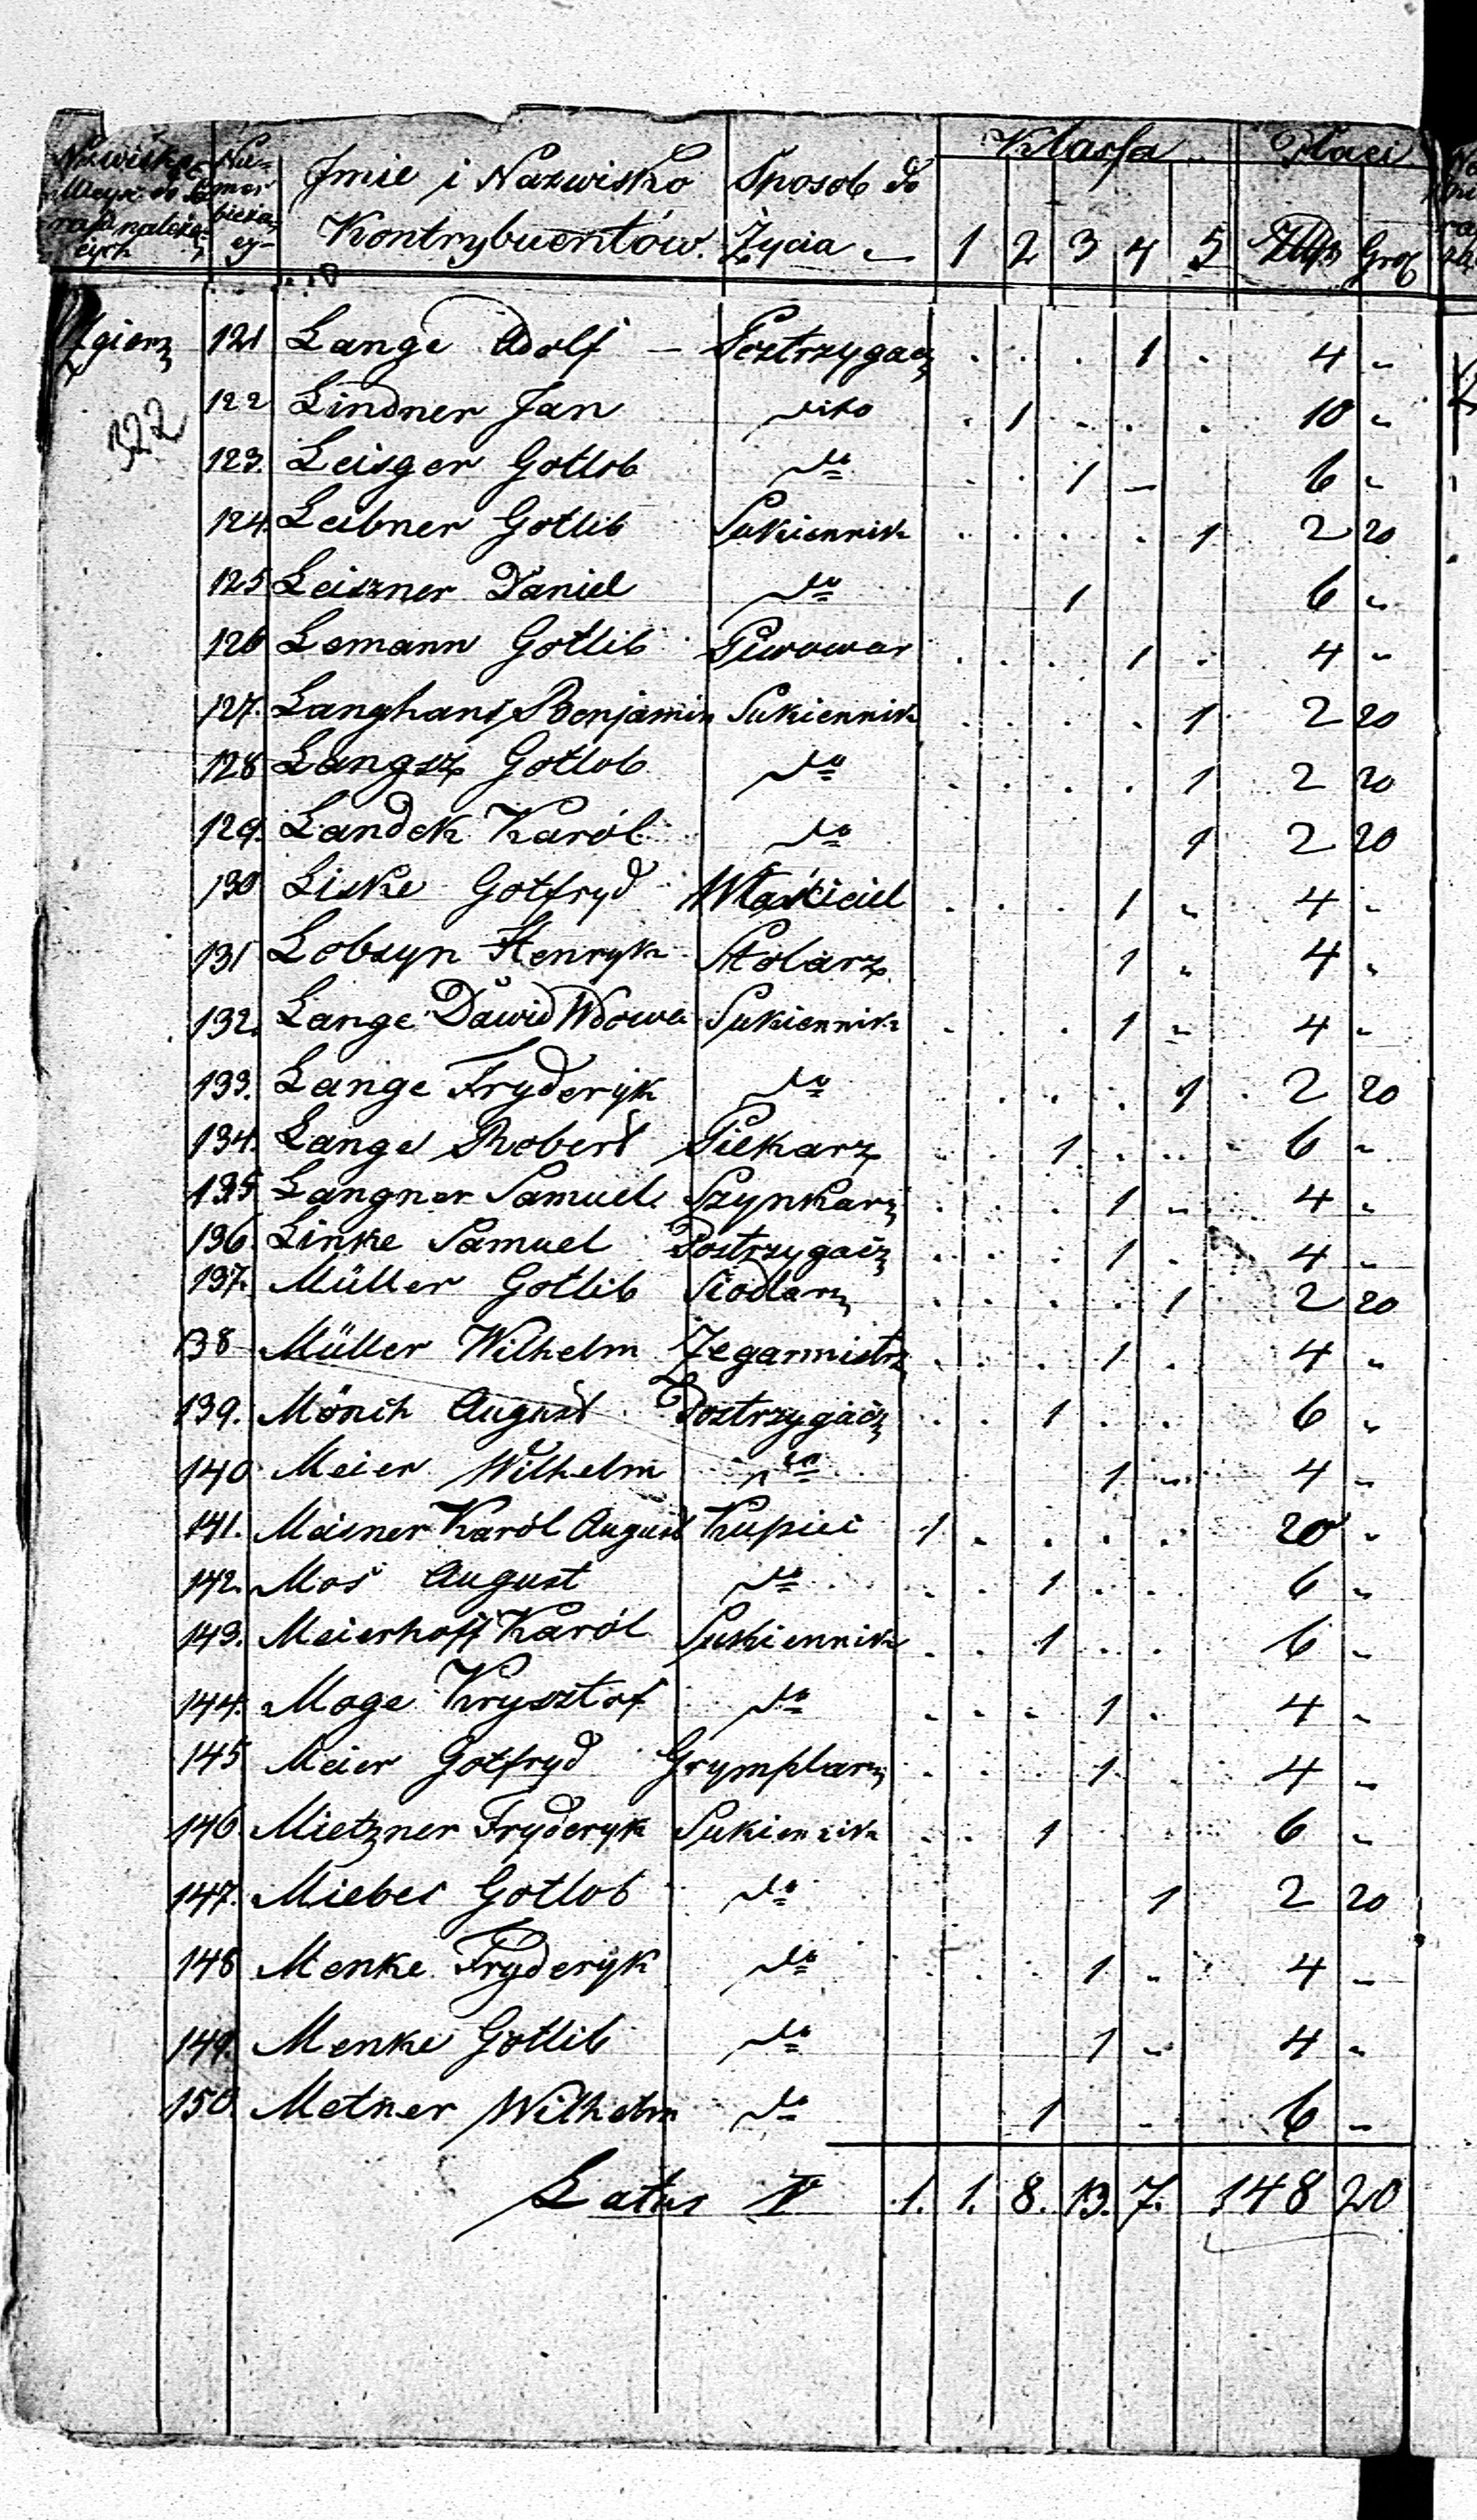 Nazwiska Nu- Imie i Nazwisko Sposob do Klassa Płaci
Mieysc do mer
należą- bieżą- Kontrybuentów. Życia 1 2 3 4 5 Złp Gro
cych cy-
Zgierz 121 Lange Adolf — Postrzygacz . . . 1 . 4 „
322
122 Lindner Jan dito . 1 . . . 10 „
123. Leisger Gotlob do . . 1 — 6 „
124. Leibner Gotlib Sukiennik . . . . 1 2 20
125 Leiszner Daniel do 1 6 „
126 Lemann Gotlib Piwowar . . . 1 . 4 „
127. Langhans Benjamin Sukiennik . . . . 1 2 20
128 Langsz Gotlob do . . . . 1 2 20
129. Landek Karól do 1 2 20
130 Liske Gotfryd Właściciel . . . 1 „ 4 „
131 Lobsyn Henryk Stolarz 1 „ 4 „
132. Lange Dawid Wdowa Sukiennik . . . 1 „ 4 „
133. Lange Fryderyk do . . . 1 2 20
134. Lange Robert Piekarz . . 1 . . 6 „
135 Langner Samuel Szynkarz . . . 1 „ 4 „
136. Linke Samuel Postrzygacz . . . 1 . 4 „
137. Müller Gotlib Siodlarz . . . . 1 2 20
138 Müller Wilhelm Zegarmistrz . . . 1 . 4 „
139. Mönch August Postrzygacz . . 1 . . 6 „
140 Meier Wilhelm do 1 „ 4 „
141. Meisner Karól August Kupiec 1 . . . . 20 „
142. Mos August do . . 1 . . 6 „
143. Meierhoff Karól Sukiennik . . 1 . . 6 „
144. Moge Krysztof do . . . 1 . 4 „
145 Meier Gotfryd Grymplarz . . . 1 . 4 „
146. Mietzner Fryderyk Sukiennik . . 1 . . 6 „
147. Miebes Gotlob do 1 2 20
148 Menke Fryderyk do . . . 1 „ 4 „
149. Menke Gotlib do 1 „ 4 „
150. Metner Wilhelm do 1 „ 6 „
Latus V 1. 1. 8. 13. 7. 148 20